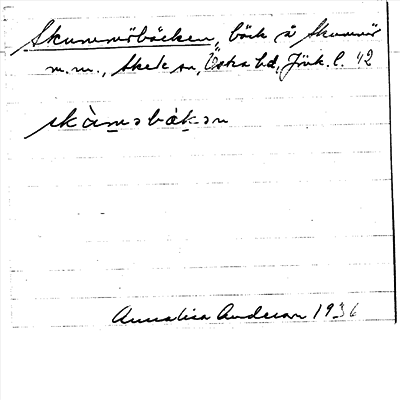 Skummeröbäcken, bäck å Skummerö
m.m., Skede sn, Östra hd, Jönk. l. 42
skàm̱ǝbàḵǝn
Annalisa Anderson 1936